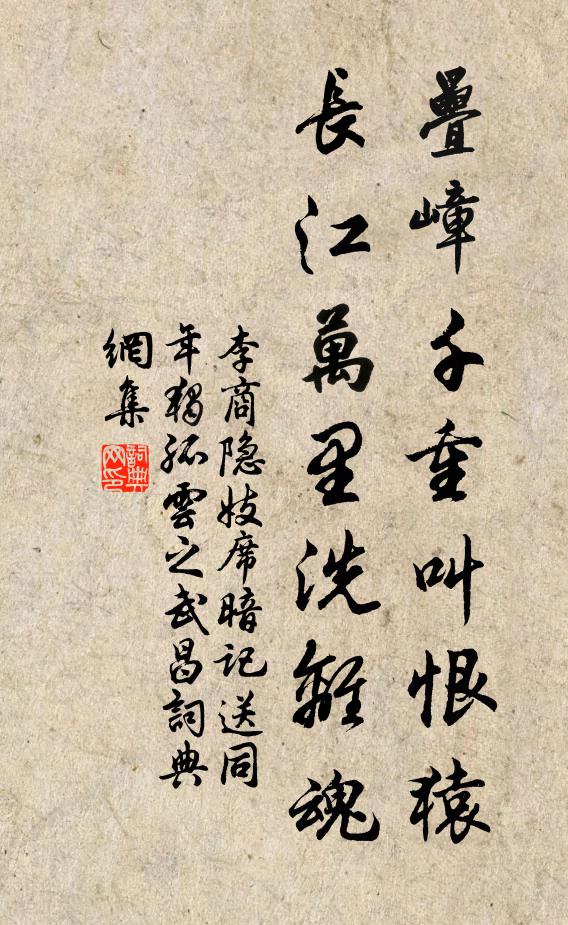 疊嶂千重叫恨猿
長江萬里洗離魂
李商隐妓席暗記送同
年獨孤雲之武昌詞典
網集
詞典
网印